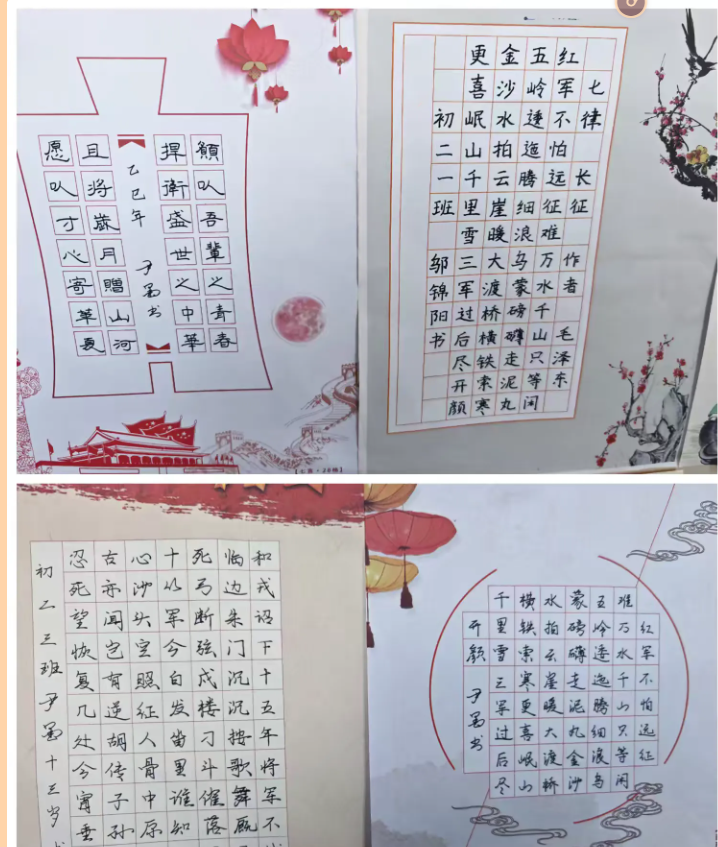 願以吾輩之青春
捍衛盛世之中華
乙巳年 尹书
且将歲月贈山河
愿以寸心寄華夏
七律 长征 作者 毛泽东
红军不怕远征难万水千山只等闲
五岭逶迤腾细浪乌蒙磅礴走泥丸
金沙水拍云崖暖大渡桥横铁索寒
更喜岷山千里雪三军过后尽开颜
初二一班 邬锦阳书
和戎诏下十五年将军不
临边朱门沉沉按歌舞厩
死弓断弦戍楼刁斗催落
十从军今白发笛里谁知
心沙头空照征人骨中原
古亦闻岂有逆胡传子孙
忍死望恢复几处今宵垂
初二三班尹十三岁
红军不怕远征
难万水千山只等闲
五岭逶迤腾细浪乌
蒙磅礴走泥丸金沙
水拍云崖暖大渡桥
横铁索寒更喜岷山
千里雪三军过后尽
开颜 尹书